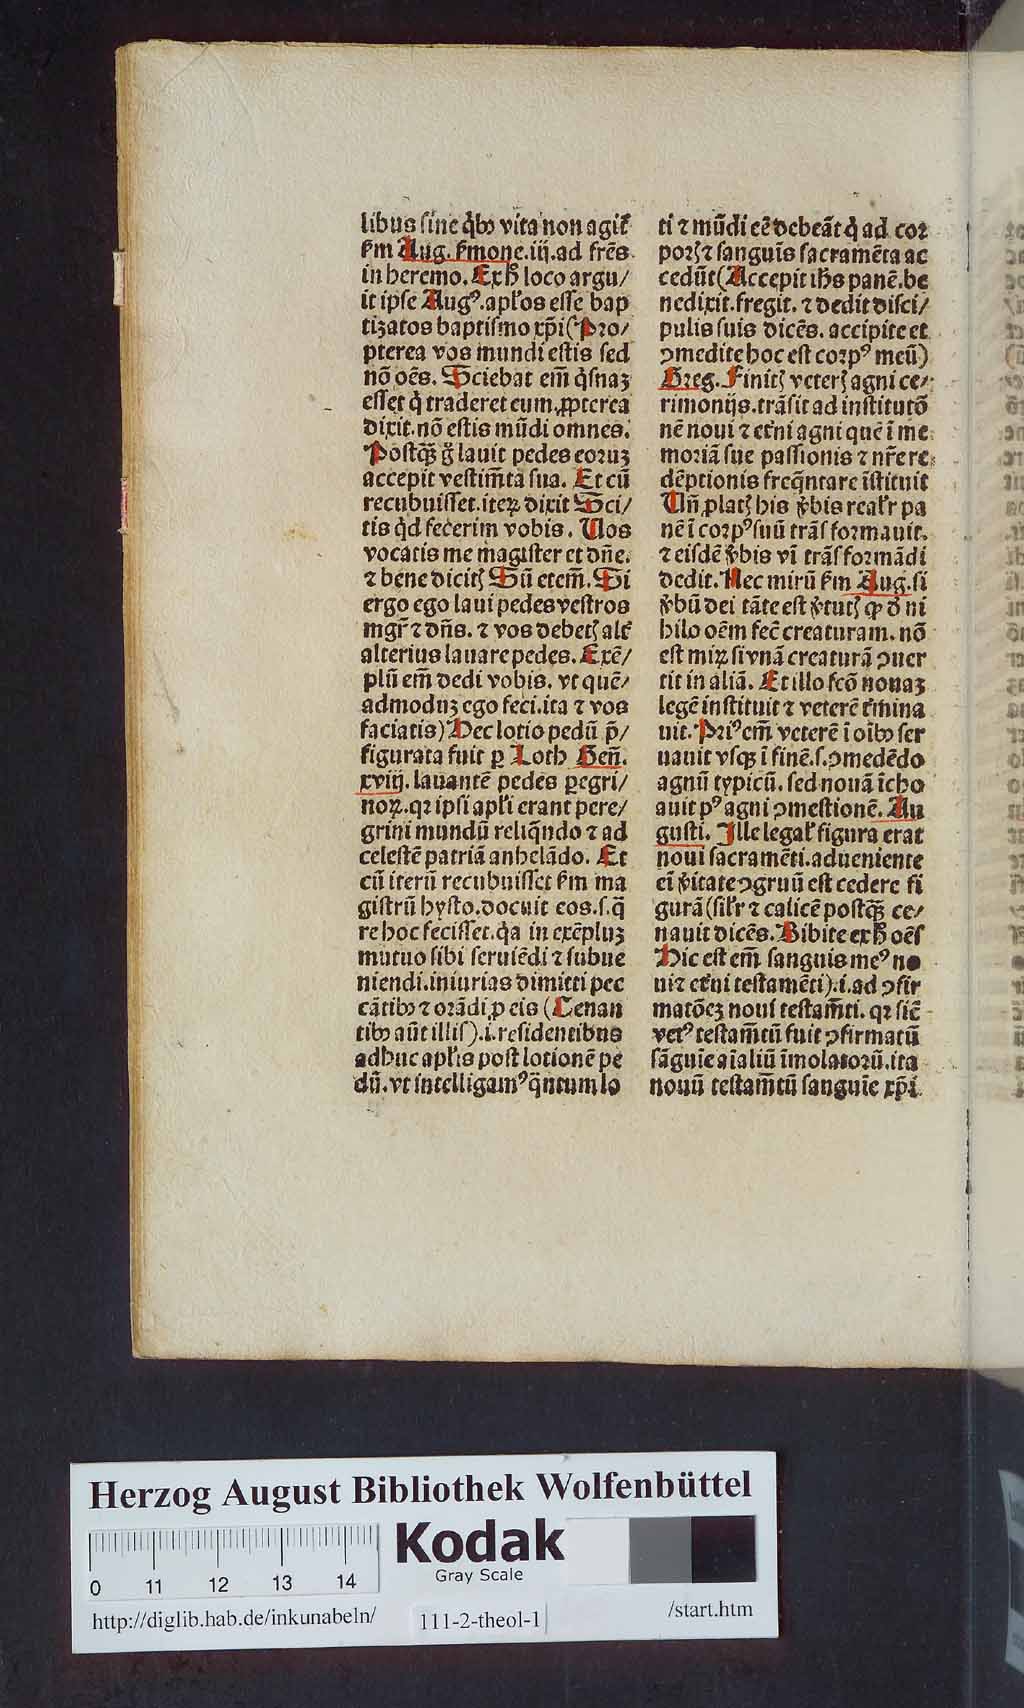 libus sine q̇bꝫ vita non agit᷑
ẜm Aug. ẜmone.iij.ad fr̄es
in heremo. Ex hͦ loco argu/
it ipse Augꝰ.apl̄os esse bap
tizatos baptismo xp̄i(Pro/
pterea vos mundi estis sed
nō oēs. Sciebat em̄ q̇snaꝫ
esset q̇ traderet eum.ꝓpterea
dixit.nō estis mūdi omnes.
Postqꝫ̄ g̊ lauit pedes eoruꝫ
accepit vestim̄ta sua. Et cū
recubuisset.iteꝝ dixit Sci/
tis qd̓ fecerim vobis. Uos
vocatis me magister et dn̄e.
⁊ bene dicitꝭ Sū etem̄. Si
ergo ego laui pedes vestros
mgr̄ ⁊ dn̄s. ⁊ vos debetꝭ alt᷑
alterius lauare pedes. Exē/
plū em̄ dedi vobis. vt quē/
admoduꝫ ego feci.ita ⁊ vos
faciatis) Hec lotio pedū p̄/
figurata fuit ꝑ Loth Gen̄.
xviij. lauantē pedes ꝑegri/
noꝝ.qꝛ ipsi apl̄i erant pere/
grini mundū reliq̄ndo ⁊ ad
celestē patriā anhelādo. Et
cū iterū recubuisset ẜm ma
gistrū hysto.docuit eos.s.q̄
re hoc fecisset.q̇a in exēpluꝫ
mutuo sibi seruiēdi ⁊ subue
niendi.iniurias dimitti pec
cātibꝫ ⁊ orādi ꝓ eis (Cenan
tibꝫ aūt illis).i.residentibus
adhuc apl̄is post lotionē pe
dū. vt intelligamꝰ q̄ntum lo
ti ⁊ mūdi eē debeāt q̇ ad cor
porꝭ ⁊ sanguīs sacramēta ac
cedūt(Accepit ihs panē.be
nedixit.fregit. ⁊ dedit disci/
pulis suis dicēs. accipite et
ꝯmedite hoc est corpꝰ meū)
Greg. Finitꝭ veterꝭ agni ce/
rimonijs.trāsit ad institutō
nē noui ⁊ et᷑ni agni quē ī me
moriā sue passionis ⁊ nr̄e re
dēptionis freq̄ntare īstituit
Un̄ ꝓlatꝭ his v̓bis real᷑r pa
nē ī corpꝰ suū trāsformauit.
⁊ eisdē v̓bis vī trāsformādi
dedit. Nec mirū ẜm Aug.si
v̓bū dei tāte est v̓tutꝭ ꝙ d̓ ni
hilo oēm fec̄ creaturam. nō
est miꝝ si vnā creaturā ꝯuer
tit in aliā. Et illo fcō nouaꝫ
legē instituit ⁊ veterē t᷑mina
uit. Priꝰ em̄ veterē ī oībꝫ ser
uauit vsqꝫ ī finē.s.ꝯmedēdo
agnū typicū. sed nouā īcho
auit pꝰ agni ꝯmestionē. Au
gusti. Ille legal᷑ figura erat
noui sacramēti.adueniente
eī v̓itate ꝯgruū est cedere fi
gurā(sil᷑r ⁊ calicē postqꝫ̄ ce/
nauit dicēs. Bibite ex hͦ oēs
Hic est em̄ sanguis meꝰ no
ui ⁊ et᷑ni testamēti).i.ad ꝯfir
matōeꝫ noui testam̄ti. qꝛ sic̄
vetꝰ testam̄tū fuit ꝯfirmatū
sāguīe aīaliū īmolatorū.ita
nouū testam̄tū sanguīe xp̄i.
Herzog August Bibliothek Wolfenbüttel
Kodak
Gray Scale
0 11 12 13 14
http://diglib.hab.de/inkunabeln/ 111-2-theol-1 /start.htm